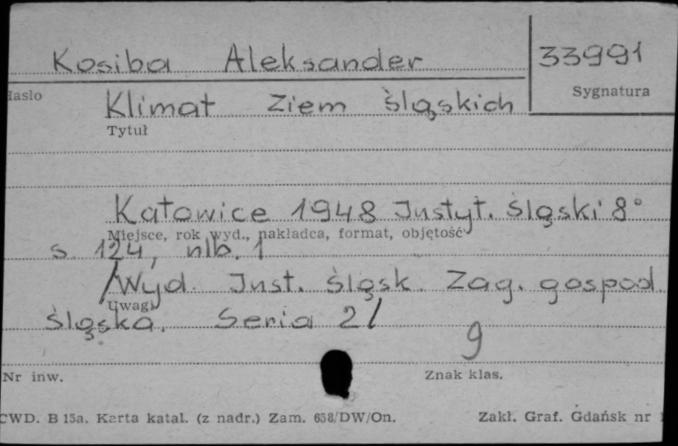 Kosiba Aleksander 33991
Hasło Sygnatura
Klimat Ziem śląskich
Tytuł
Katowice 1948 Instyt. śląski 8°
Miejsce, rok wyd., nakładca, format, objętość
s. 124, nlb. 1
/Wyd. Inst. śląsk. Zag. gospod.
Uwagi
śląska. Seria 2/
9
Nr inw. Znak klas.
CWD. B 15a. Karta katal. (z nadr.) Zam. 658/DW/On. Zakł. Graf. Gdańsk nr